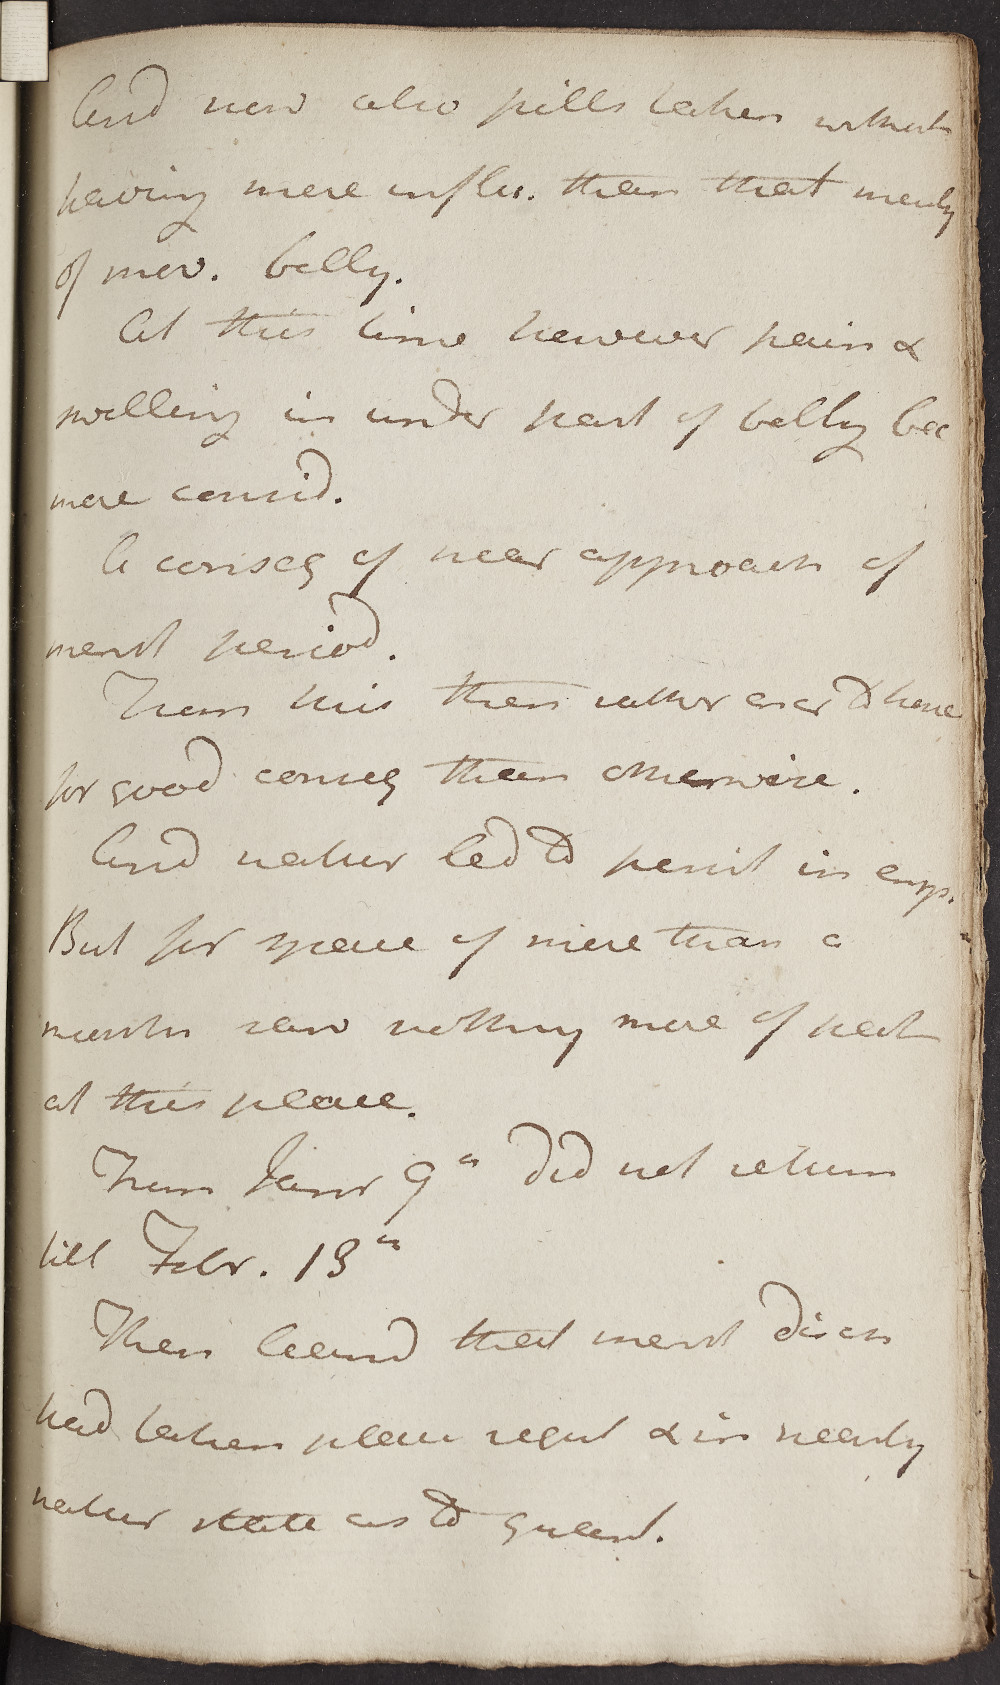 And now also pills taken without
having more influ. than that merely
of mov. belly.
At this time however pain &
swelling in under part of belly bec
more consid.
A conseq of near approach of
menst period.
From this then rather ever to have
for good conseq than otherwise.
And rather led to persist in emp.
But for space of more than a
month saw nothing more of pat
at this place.
From Janr 9th did not return
till Febr. 13th
Then learnd that menst disch
had taken place regul & in nearly
natur state as to quant.